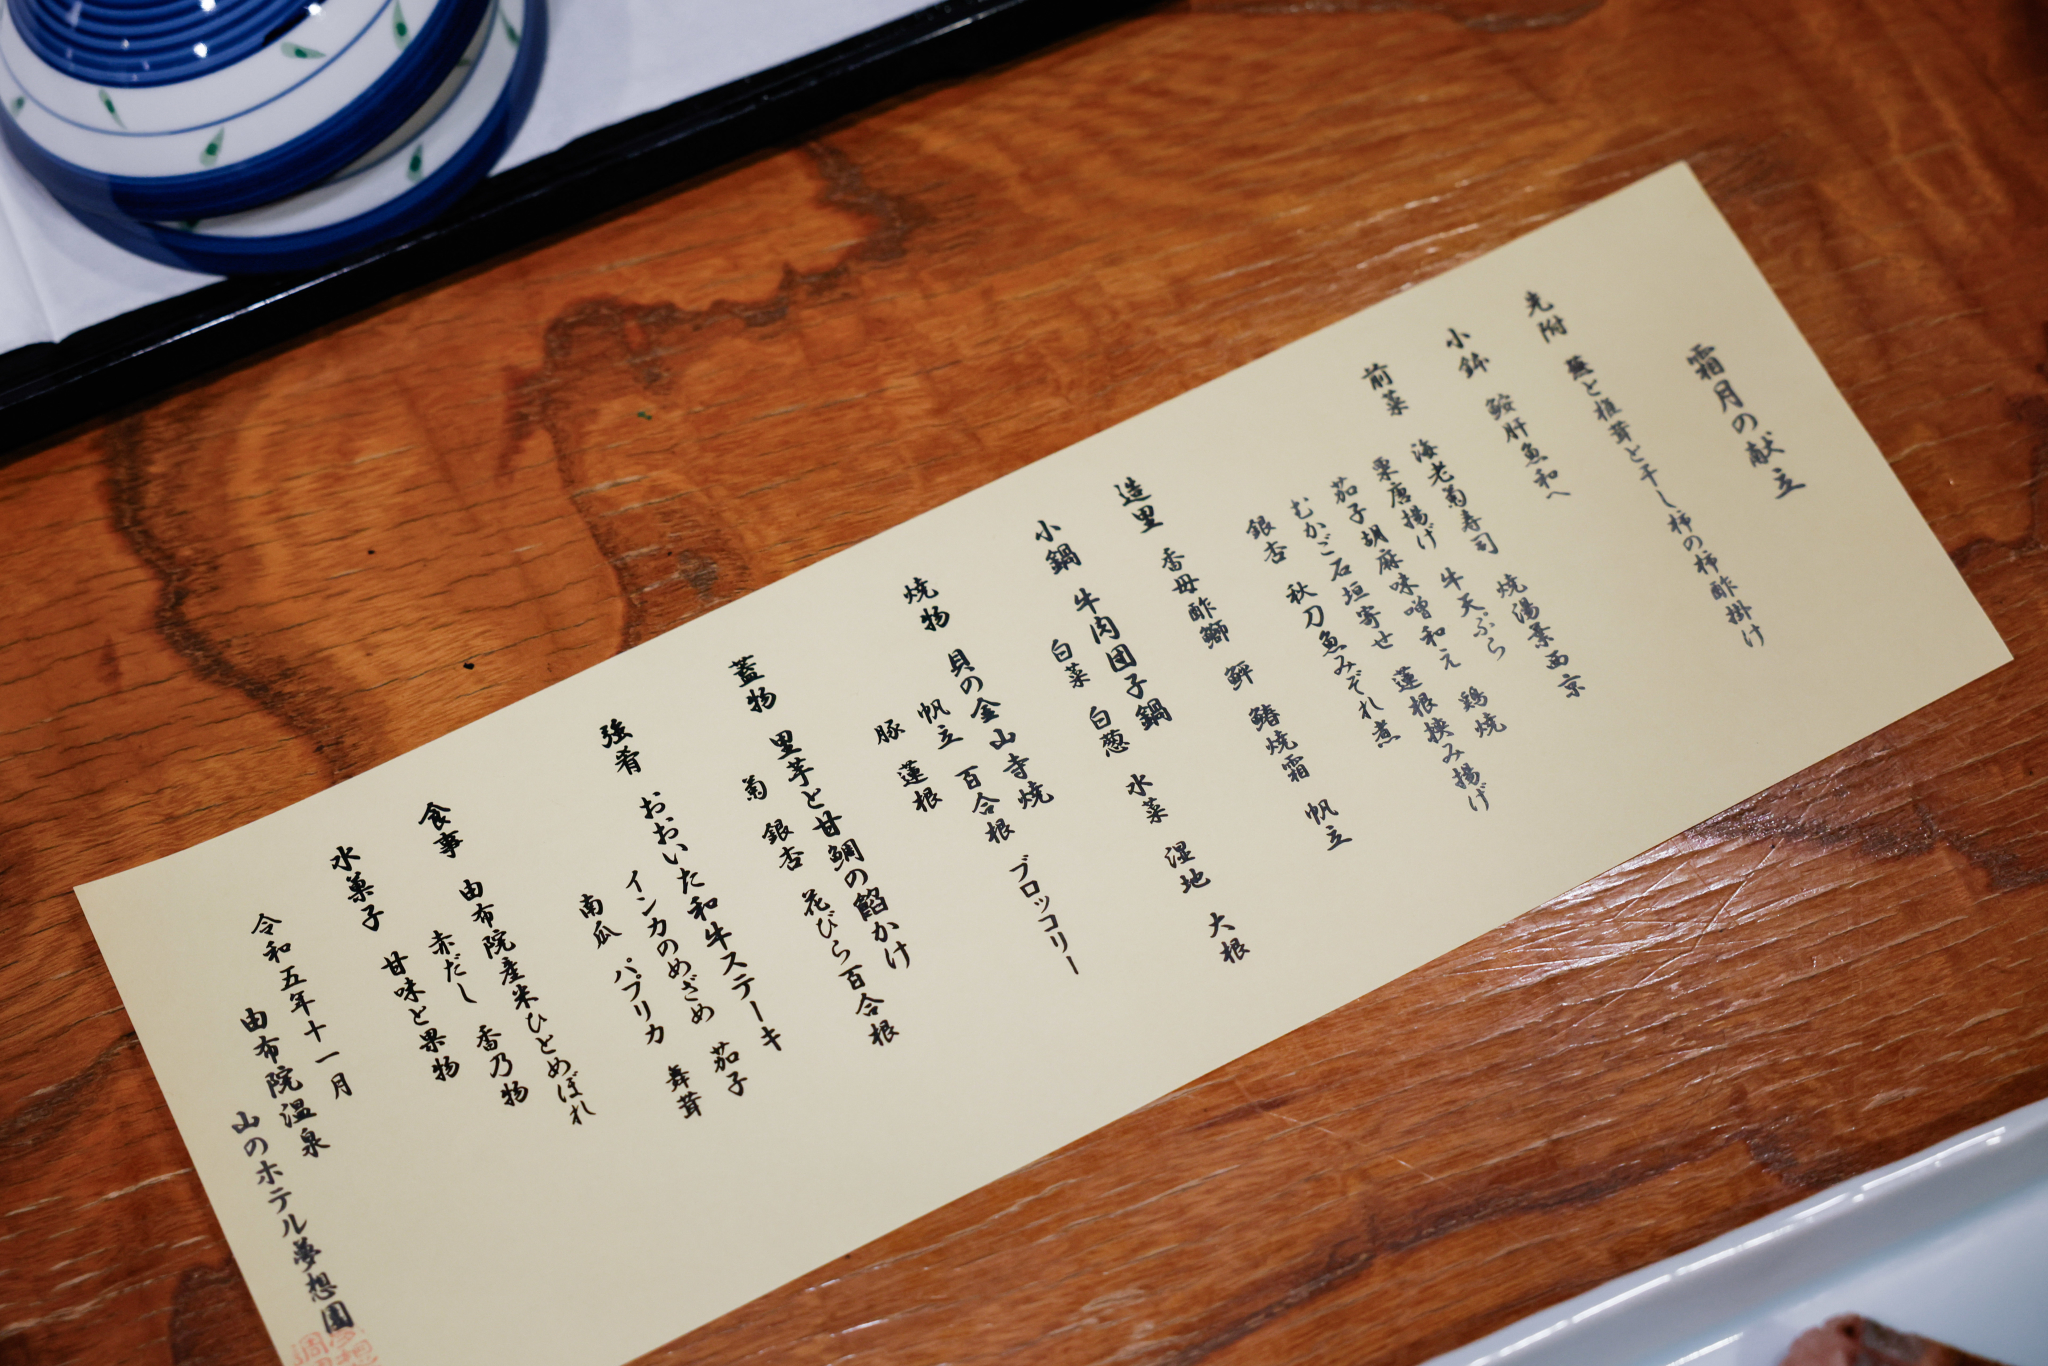 霜月の献立
先附 蕪と椎茸と干し柿の柿酢掛け
小鉢 鮟肝魚和へ
前菜 海老菊寿司 焼湯葉西京
栗唐揚げ 牛天ぷら 鶏焼
茄子胡麻味噌和え 蓮根挟み揚げ
むかご石垣寄せ
銀杏 秋刀魚みぞれ煮
造里 香母酢鰤 鮃 鰆焼霜 帆立
小鍋 牛肉団子鍋
白菜 白葱 水菜 湿地 大根
焼物 貝の金山寺焼
帆立 百合根 ブロッコリー
豚 蓮根
蓋物 里芋と甘鯛の餡かけ
菊 銀杏 花びら百合根
強肴 おおいた和牛ステーキ
インカのめざめ 茄子
南瓜 パプリカ 舞茸
食事 由布院産米ひとめぼれ
赤だし 香乃物
水菓子 甘味と果物
令和五年十一月
由布院温泉
山のホテル夢想園